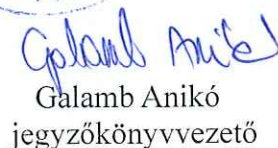 Galamb Anikó
Galamb Anikó
jegyzőkönyvvezető